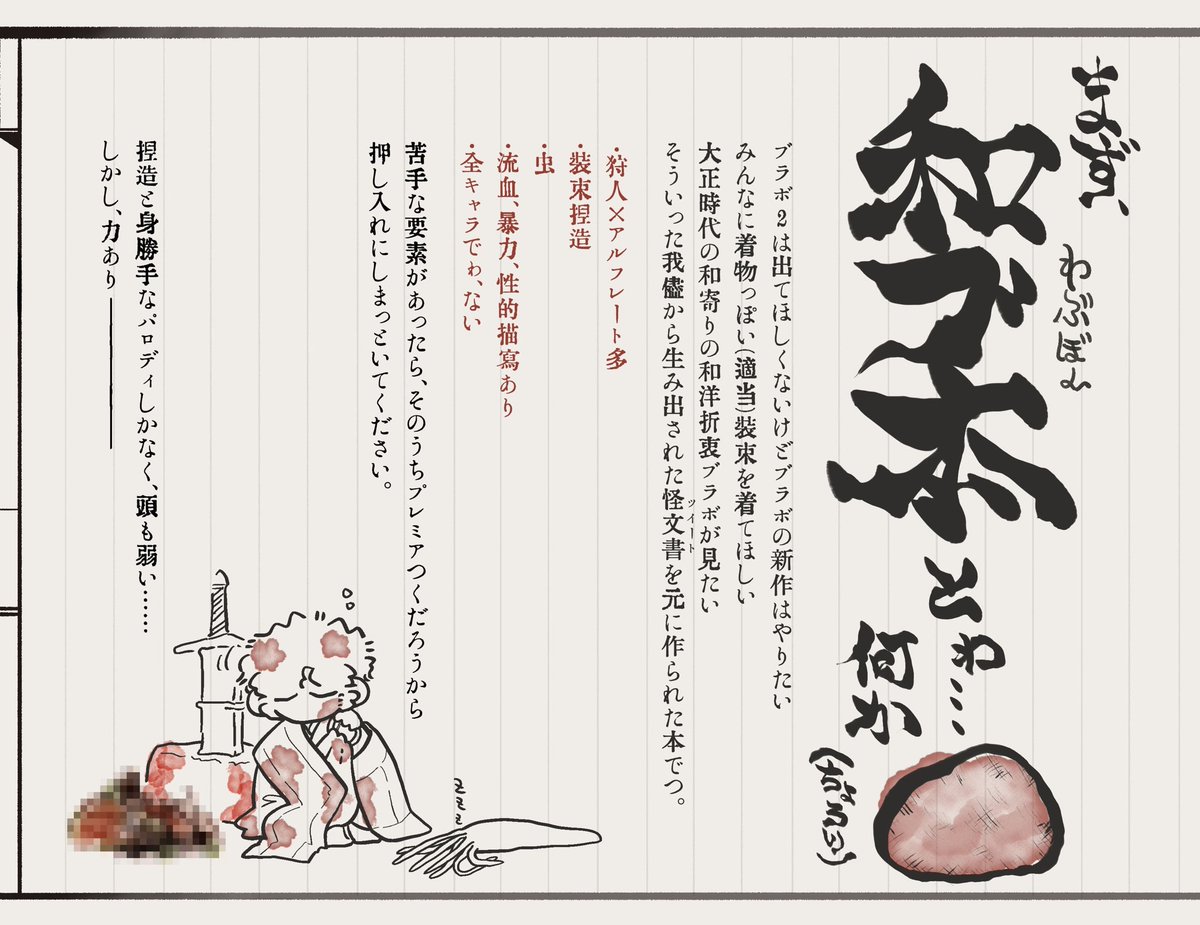 まず、
和ブ本
わぶぼん
とわ…
何か
(ちょろい)
ブラボ2は出てほしくないけどブラボの新作はやりたい
みんなに着物っぽい(適当)装束を着てほしい
大正時代の和寄りの和洋折衷ブラボが見たい
そういった我儘から生み出された怪文書を元に作られた本でつ。
ツイート
・狩人×アルフレート多
・装束捏造
・虫
・流血、暴力、性的描寫あり
・全キャラでわ、ない
苦手な要素があったら、そのうちプレミアつくだろうから
押し入れにしまっといてください。
捏造と身勝手なパロディしかなく、頭も弱い……
しかし、力あり――――
zzzz